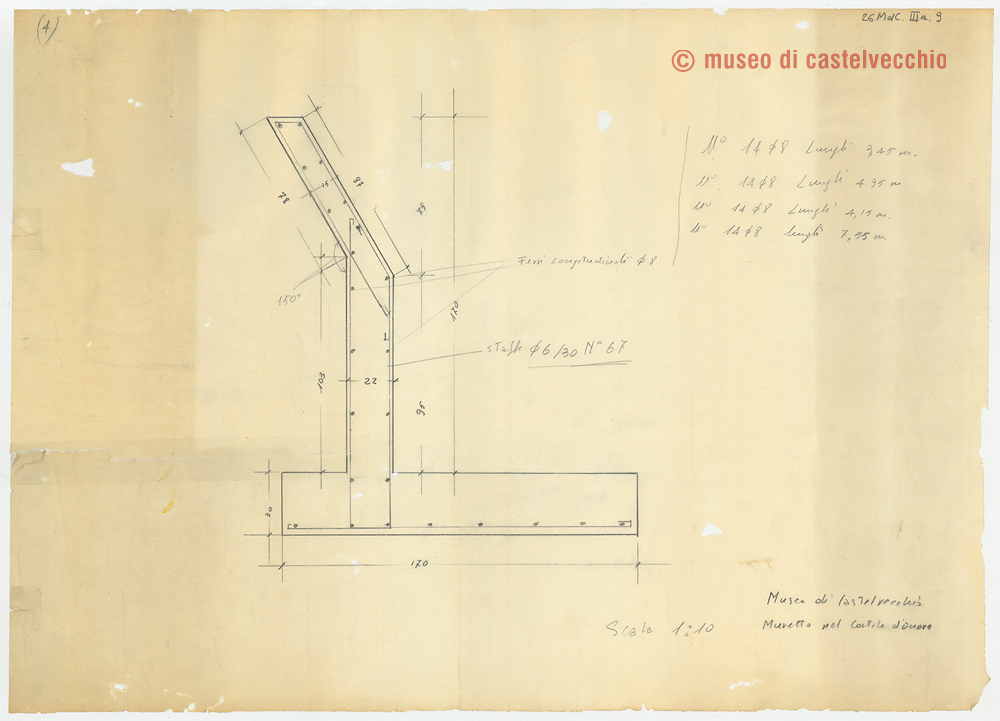 (4)
26 MdC. III a. 9
© museo di castelvecchio
N° 14 φ8 Lunghi 3,45 m.
N° 14 φ8 Lunghi 4.95 m.
N° 14 φ8 Lunghi 4,15 m.
N° 14 φ8 lunghi 7,55 m.
78
15
97
75
150°
Ferri Longitudinali φ8
170
staffe φ6/30 N° 67
103
22
95
30
170
Scala 1:10
Museo di Castelvecchio
Muretto nel Cortile d'onore